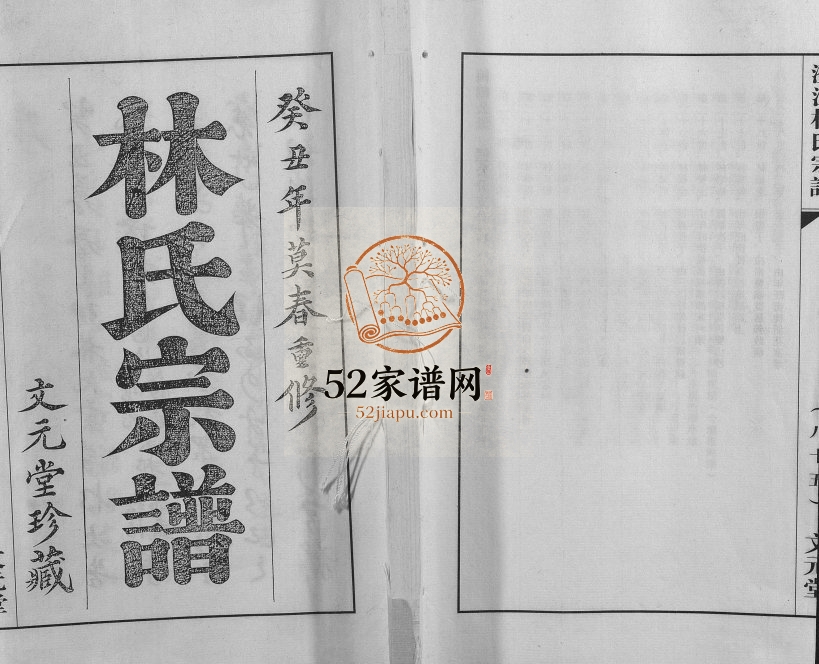 癸丑年莫春重修
林氏宗譜
文元堂珍藏
52家谱网
52jiapu.com
林氏宗譜
文元堂